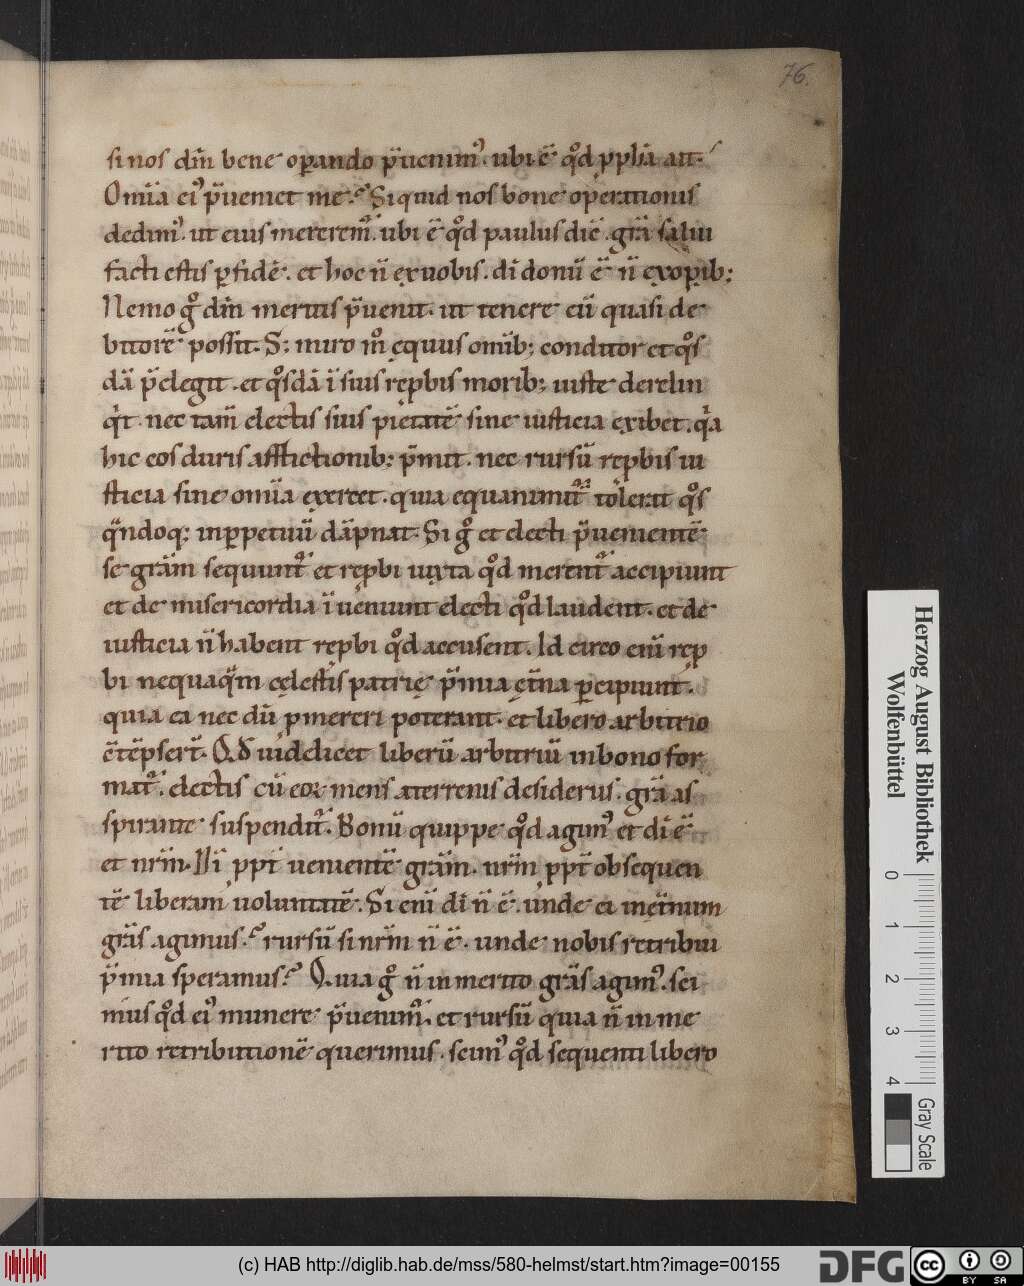 76.
si nos dn̄m bene oꝑando p̄uenimꝰ. ubi ē qd̊ ꝓpha ait.
Omīa eiꝰ p̄ueniet me? Si quid nos bone operationis
dedimꝰ. ut eius mereremꝰ. ubi ē qd̊ paulus diē. gr̄a salui
facti estis ꝑ fidē. et hoc n̄ ex uobis. di donū ē n̄ ex oꝑib;
Nemo gͦ dn̄m meritis p̄uenit. ut tenere eū quasi de
bitorē possit. S; miro mͦ ęquus omīb; conditor et qͦs
dā p̄elegit. et qͦsdā ī suis rep̱bis morib; iuste derelin
qͥt. nec tam̄ electis suis pietatē sine iusticia exibet. qͥa
hic eos duris afflictionib; p̄mit. nec rursū rep̱bis iu
sticia sine omīa exercet. quia equanimit̄ tolerat qͦs
qn̄doq; in ꝑpetuū dāpnat. Si gͦ et electi p̄uenientē
se grām sequunt̄ et rep̱bi iuxta qd̊ merent̄ accipiunt
et de misericordia īueniunt electi qd̊ laudent. et de
iusticia n̄ habent rep̱bi qd̊ accusent. Id circo eni rep̱
bi nequaqͣm cęlestis patrię p̄mia ęt̄na ꝑcipiunt.
quia ea nec dū ꝓmereri poterant. et libero arbitrio
ētēpsert̄. Qd̄ uidelicet liberū arbitriū in bono for
mat̄. electis cū eoꝝ mens a terrenis desideriis. gr̄a as
spirante suspendit̄. Bonū quippe qd̊ agimꝰ et di ē
et nr̄m. Di ꝑpt̄ uenientē grām. nr̄m ꝑpt̄ obsequen
tē liberam uoluntatē. Si enī di n̄ ē. unde ei inęt̄num
grās agimus? rursū si nr̄m n̄ ē. unde nobis retribui
p̄mia speramus? Quia gͦ n̄ inmerito grās agimꝰ. sci
mus qd̊ eiꝰ munere p̄uenimꝰ. et rursū quia n̄ inme
rito retributionē querimus. scimꝰ qd̊ sequenti libero
Herzog August Bibliothek
Wolfenbüttel
0 1 2 3 4
Gray Scale
(c) HAB http://diglib.hab.de/mss/580-helmst/start.htm?image=00155
DFG
cc BY SA